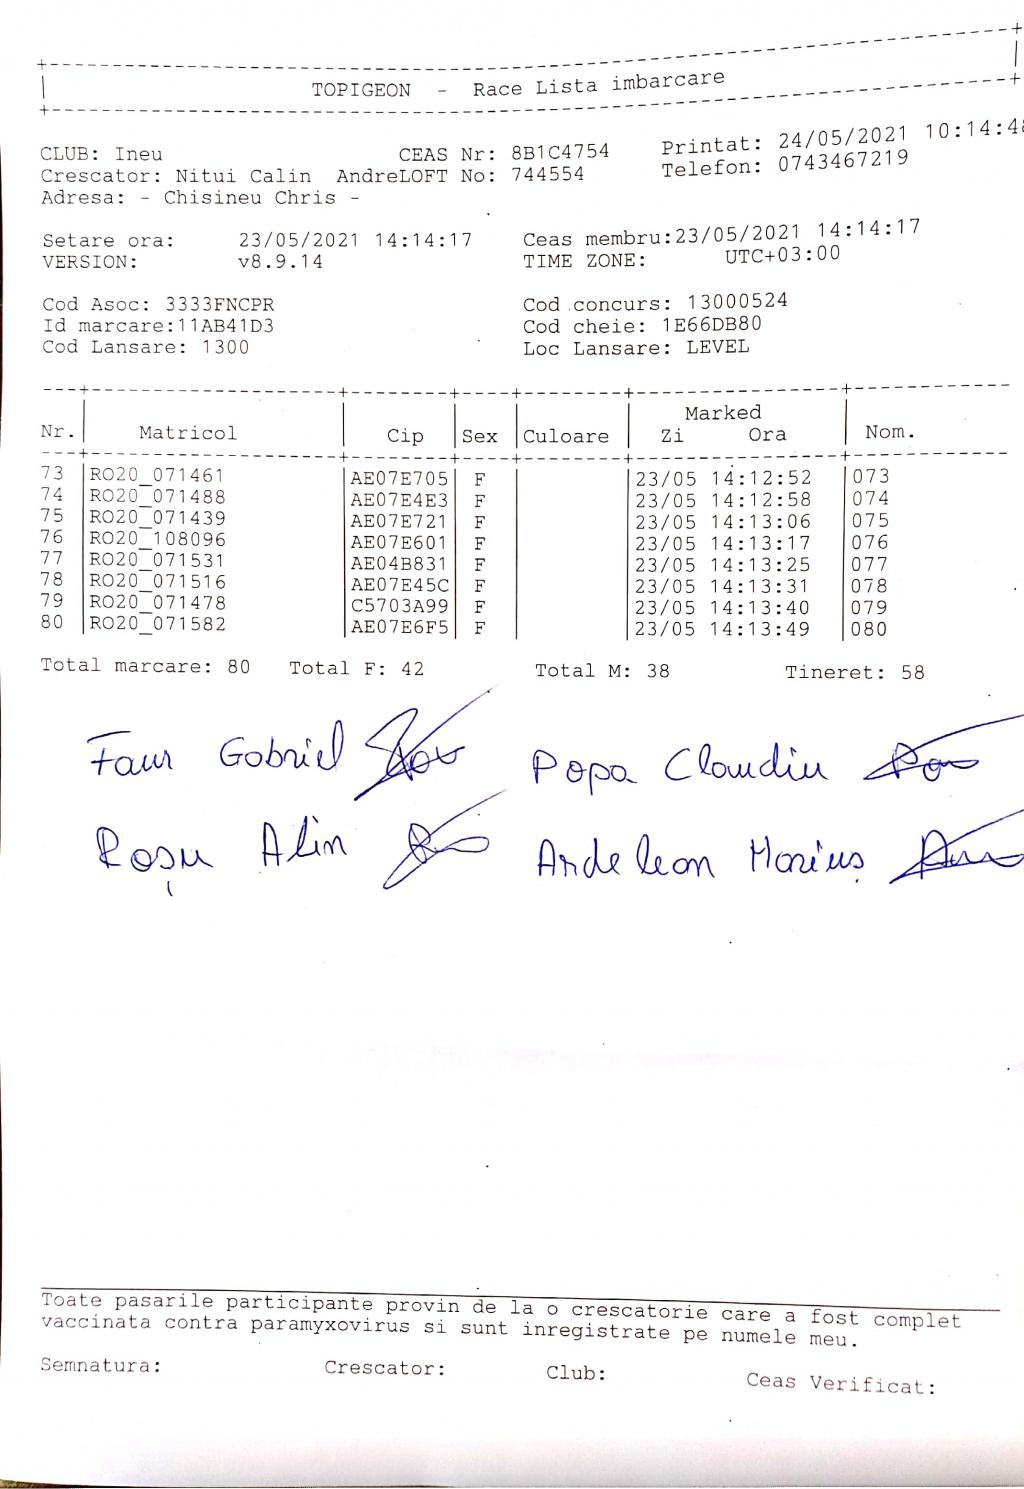 TOPIGEON - Race Lista imbarcare
CLUB: Ineu CEAS Nr: 8B1C4754 Printat: 24/05/2021 10:14:48
Crescator: Nitui Calin AndreLOFT No: 744554 Telefon: 0743467219
Adresa: - Chisineu Chris -
Setare ora: 23/05/2021 14:14:17 Ceas membru:23/05/2021 14:14:17
VERSION: v8.9.14 TIME ZONE: UTC+03:00
Cod Asoc: 3333FNCPR Cod concurs: 13000524
Id marcare:11AB41D3 Cod cheie: 1E66DB80
Cod Lansare: 1300 Loc Lansare: LEVEL
Marked
Nr. Matricol Cip Sex Culoare Zi Ora Nom.
73 RO20_071461 AE07E705 F 23/05 14:12:52 073
74 RO20_071488 AE07E4E3 F 23/05 14:12:58 074
75 RO20_071439 AE07E721 F 23/05 14:13:06 075
76 RO20_108096 AE07E601 F 23/05 14:13:17 076
77 RO20_071531 AE04B831 F 23/05 14:13:25 077
78 RO20_071516 AE07E45C F 23/05 14:13:31 078
79 RO20_071478 C5703A99 F 23/05 14:13:40 079
80 RO20_071582 AE07E6F5 F 23/05 14:13:49 080
Total marcare: 80 Total F: 42 Total M: 38 Tineret: 58
Faur Gabriel Popa Claudiu
Roșu Alin Ardelean Marius
Toate pasarile participante provin de la o crescatorie care a fost complet
vaccinata contra paramyxovirus si sunt inregistrate pe numele meu.
Semnatura: Crescator: Club: Ceas Verificat: